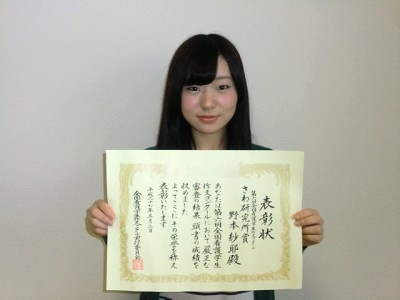 表彰状
第六回全国看護学生作文コンクール
さわ研究所賞
野本紗耶殿
あなたは第六回全国看護学生
作文コンクールにおいて厳正な
審査の結果頭書の成績を
収めました
よってここにその栄誉を称え
表彰いたします
平成二十七年三月二日